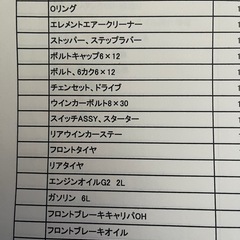 Oリング
エレメントエアークリーナー
ストッパー、ステップラバー
ボルトキャップ6×12
ボルト、6カク6×12
チェンセット、ドライブ
ウインカーボルト8×30
スイッチASSY、スターター
リアウインカーステー
フロントタイヤ
リアタイヤ
エンジンオイルG2 2L
ガソリン 6L
フロントブレーキキャリパOH
フロントブレーキオイル